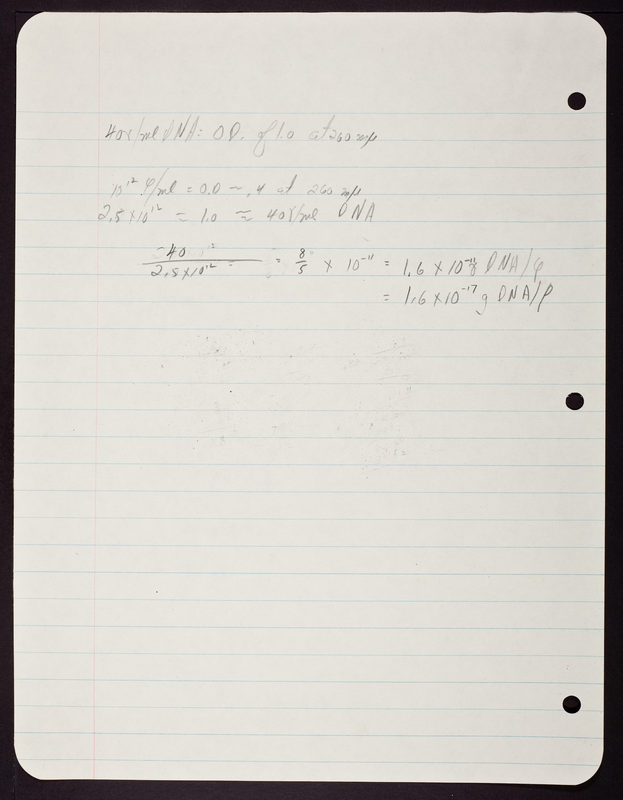 40γ/ml DNA: O.D. of 1.0 at 260 mμ
10¹² φ/ml = O.D ~ .4 at 260 mμ
2.5 × 10¹² = 1.0 ≈ 40γ/ml DNA
40 / 2.5 × 10¹² = 8/5 × 10⁻¹¹ = 1.6 × 10⁻¹¹ γ DNA/φ
= 1.6 × 10⁻¹⁷ g DNA/φ